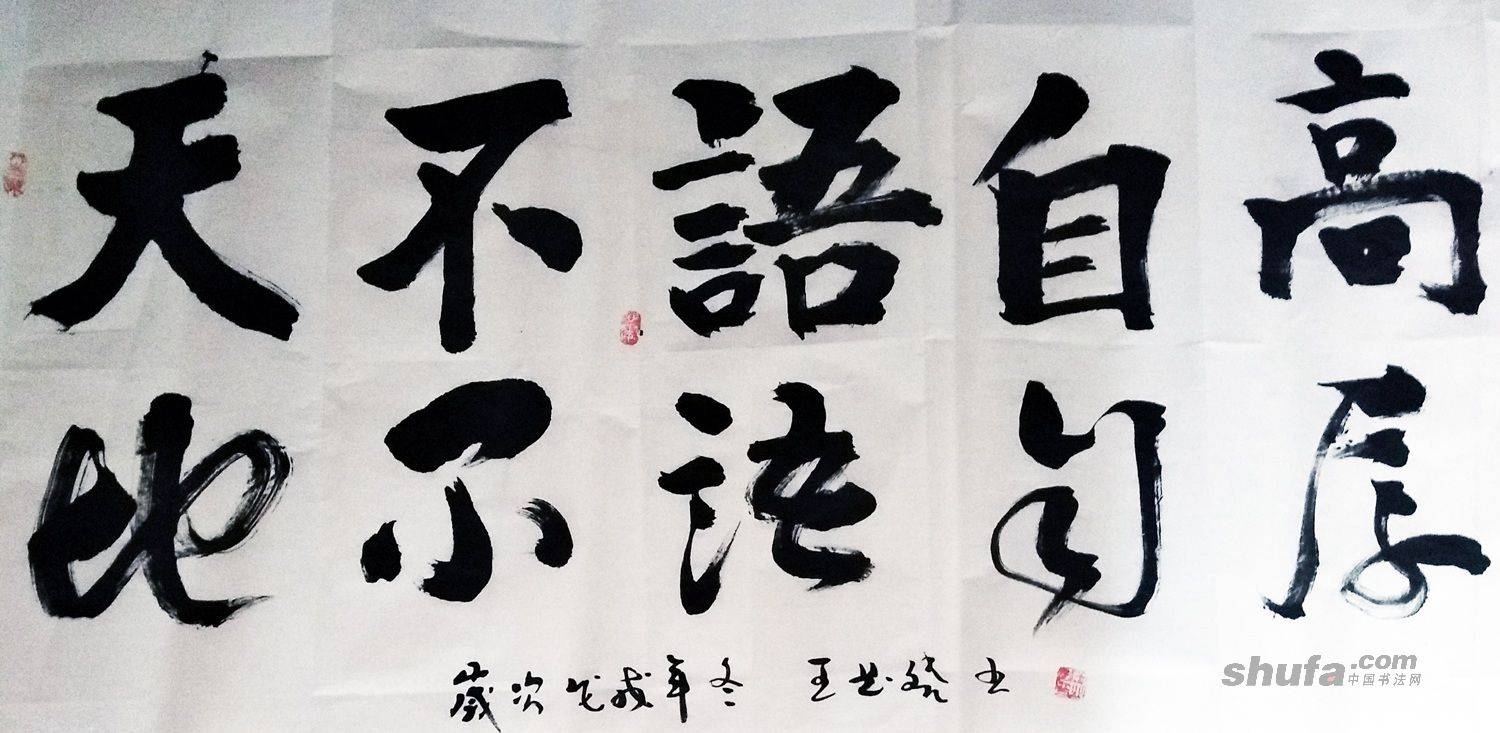 天不語自高
地不語自厚
歲次戊戌年冬 王 書
shufa.com
中国书法网